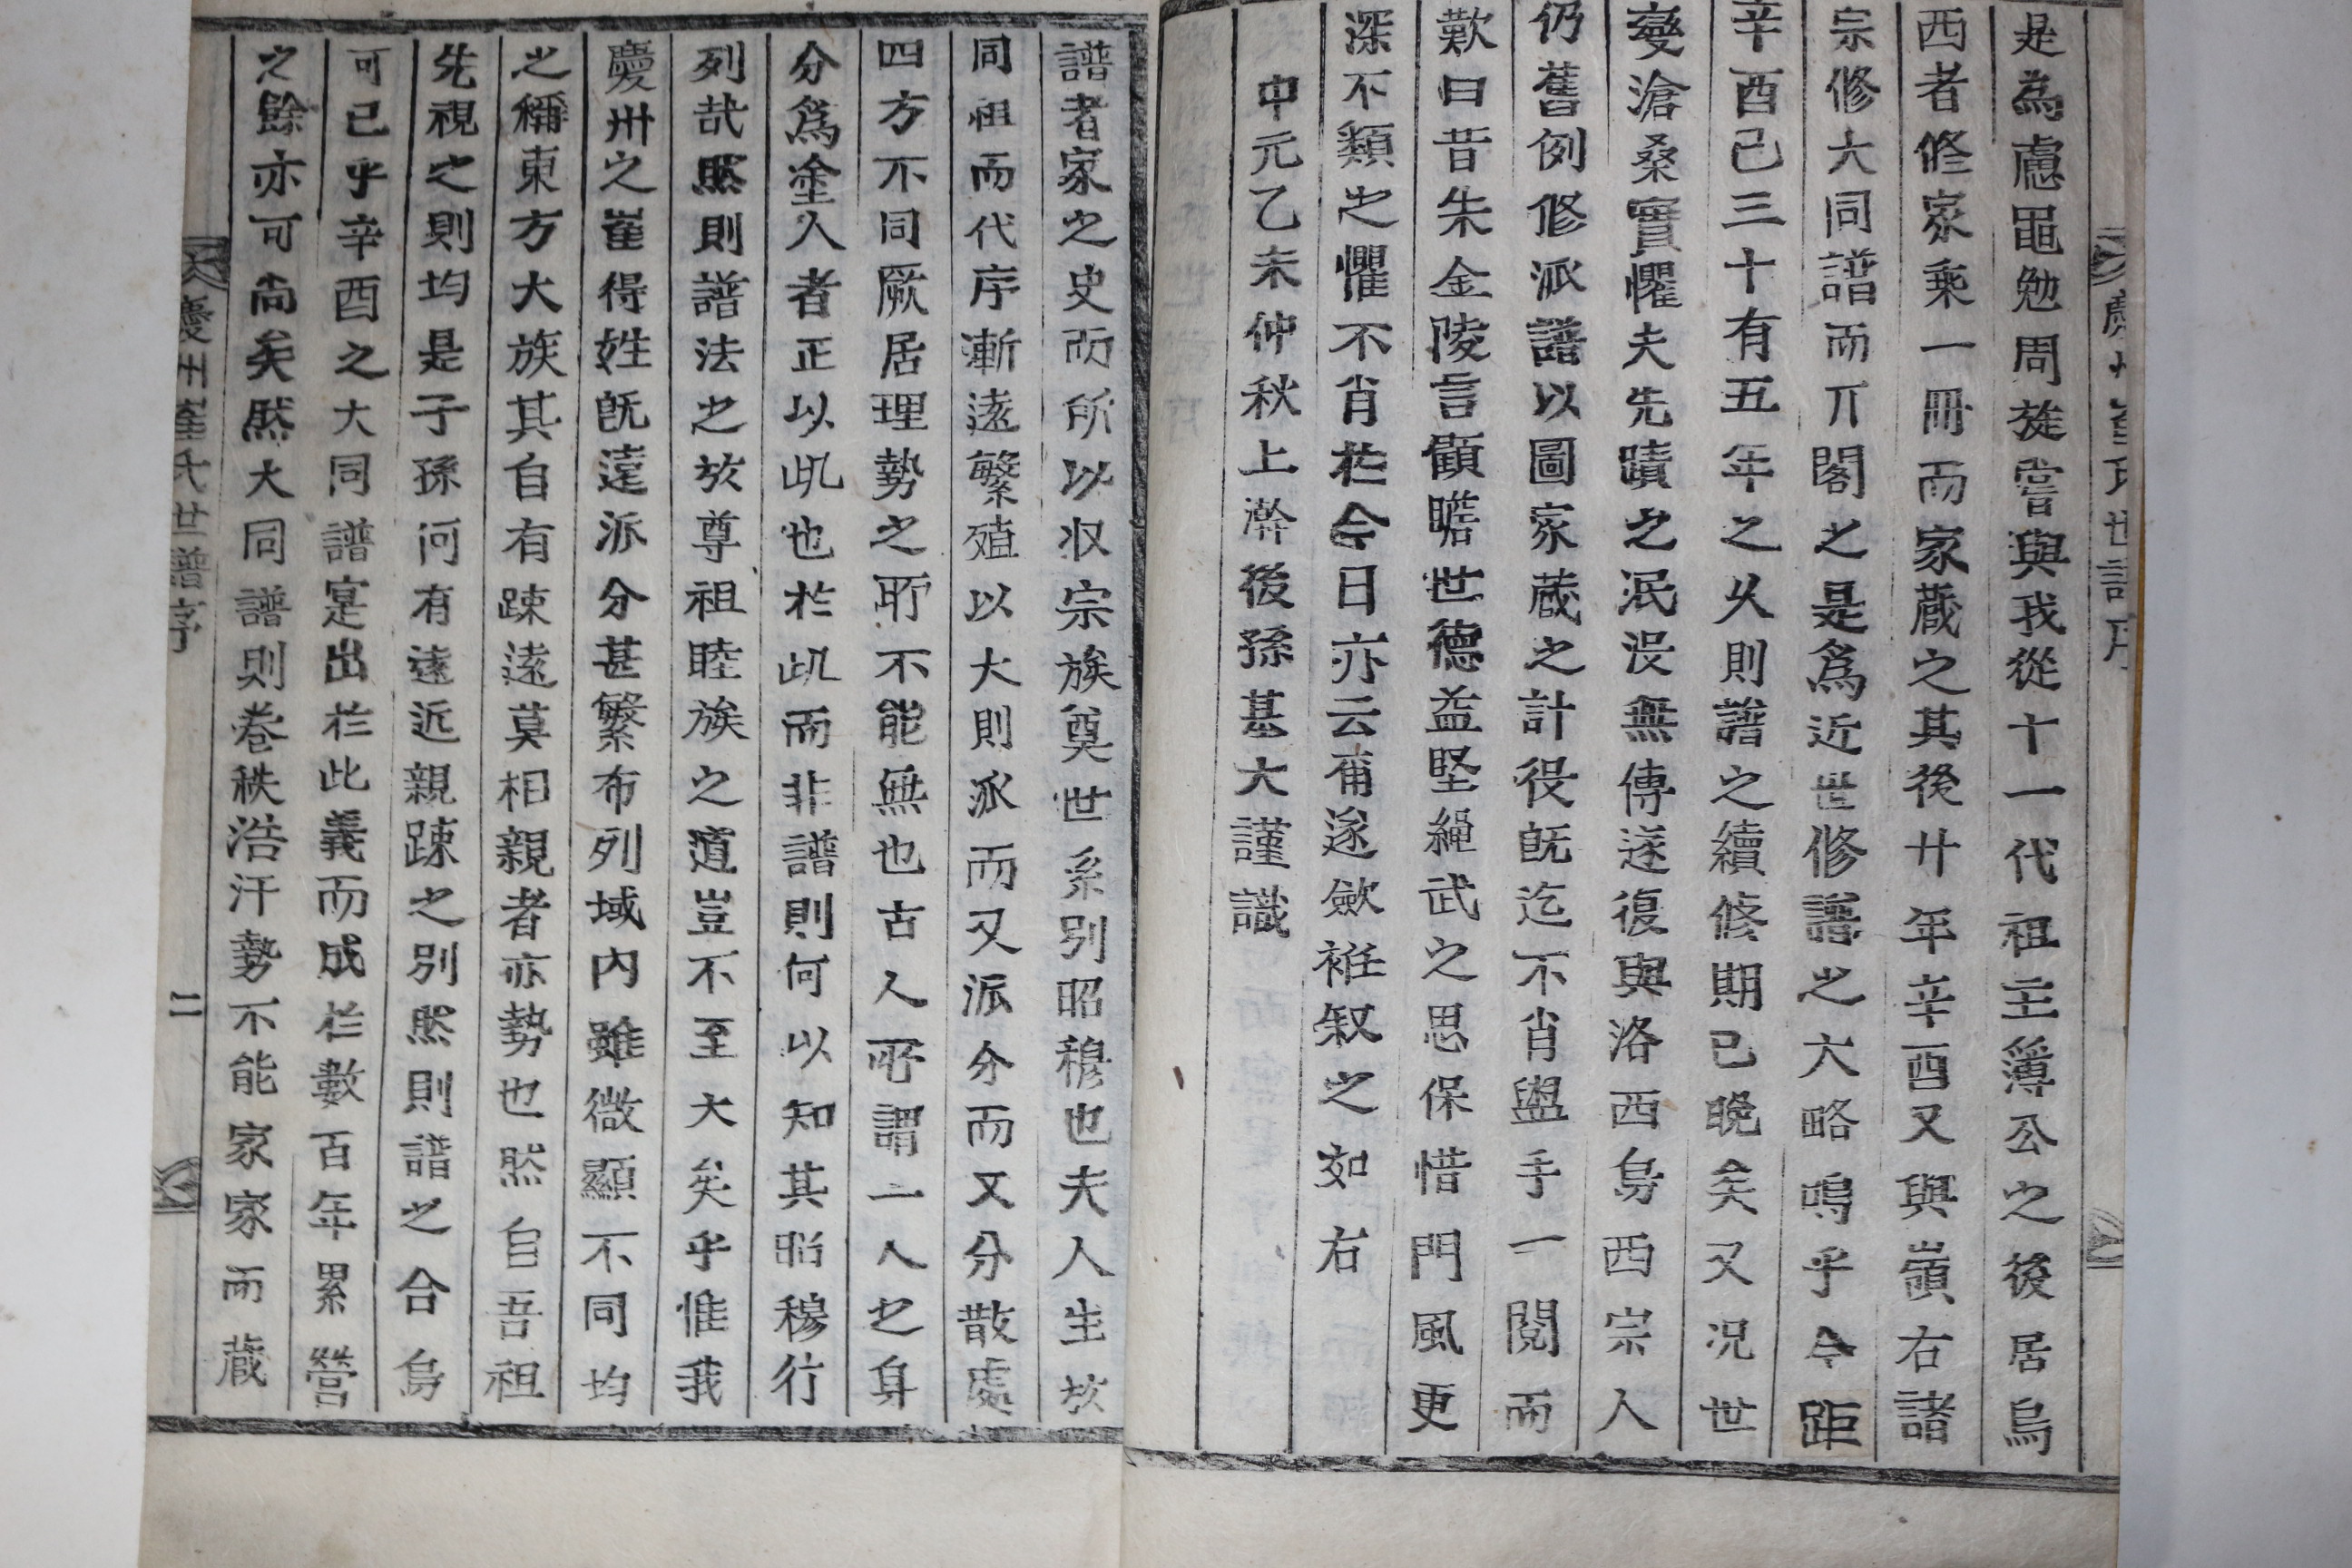 慶州崔氏世譜序
是為慮黽勉周旋嘗與我從十一代祖主簿公之後居烏
西者修家乘一冊而家藏之其後廿年辛酉又與嶺右諸
宗修大同譜而丌閣之是爲近世修譜之大略嗚乎今距
辛酉己三十有五年之久則譜之續修期已晚矣又况世
變滄桑實懼夫先蹟之泯沒無傳遂復與洛西烏西宗人
仍舊例修派譜以圖家藏之計役旣迄不肖盥手一閱而
歎曰昔朱金陵言顧瞻世德益堅繩武之思保惜門風更
深不類之懼不肖於今日亦云甫遂斂袵叙之如右
中元乙未仲秋上澣後孫基大謹識
譜者家之史而所以収宗族奠世系別昭穆也夫人生於
同祖而代序漸遠繁殖以大則派而又派分而又分散處
四方不同厥居理勢之所不能無也古人所謂一人之身
分爲塗人者正以此也於此而非譜則何以知其昭穆行
列哉然則譜法之於尊祖睦族之道豈不至大矣乎惟我
慶州之崔得姓旣遠派分甚繁布列域內雖微顯不同均
之稱東方大族其自有踈遠莫相親者亦勢也然自吾祖
先視之則均是子孫何有遠近親踈之別然則譜之合烏
可已乎辛酉之大同譜寔出於此義而成於數百年累營
之餘亦可尚矣然大同譜則卷秩浩汗勢不能家家而藏
慶州崔氏世譜序
二